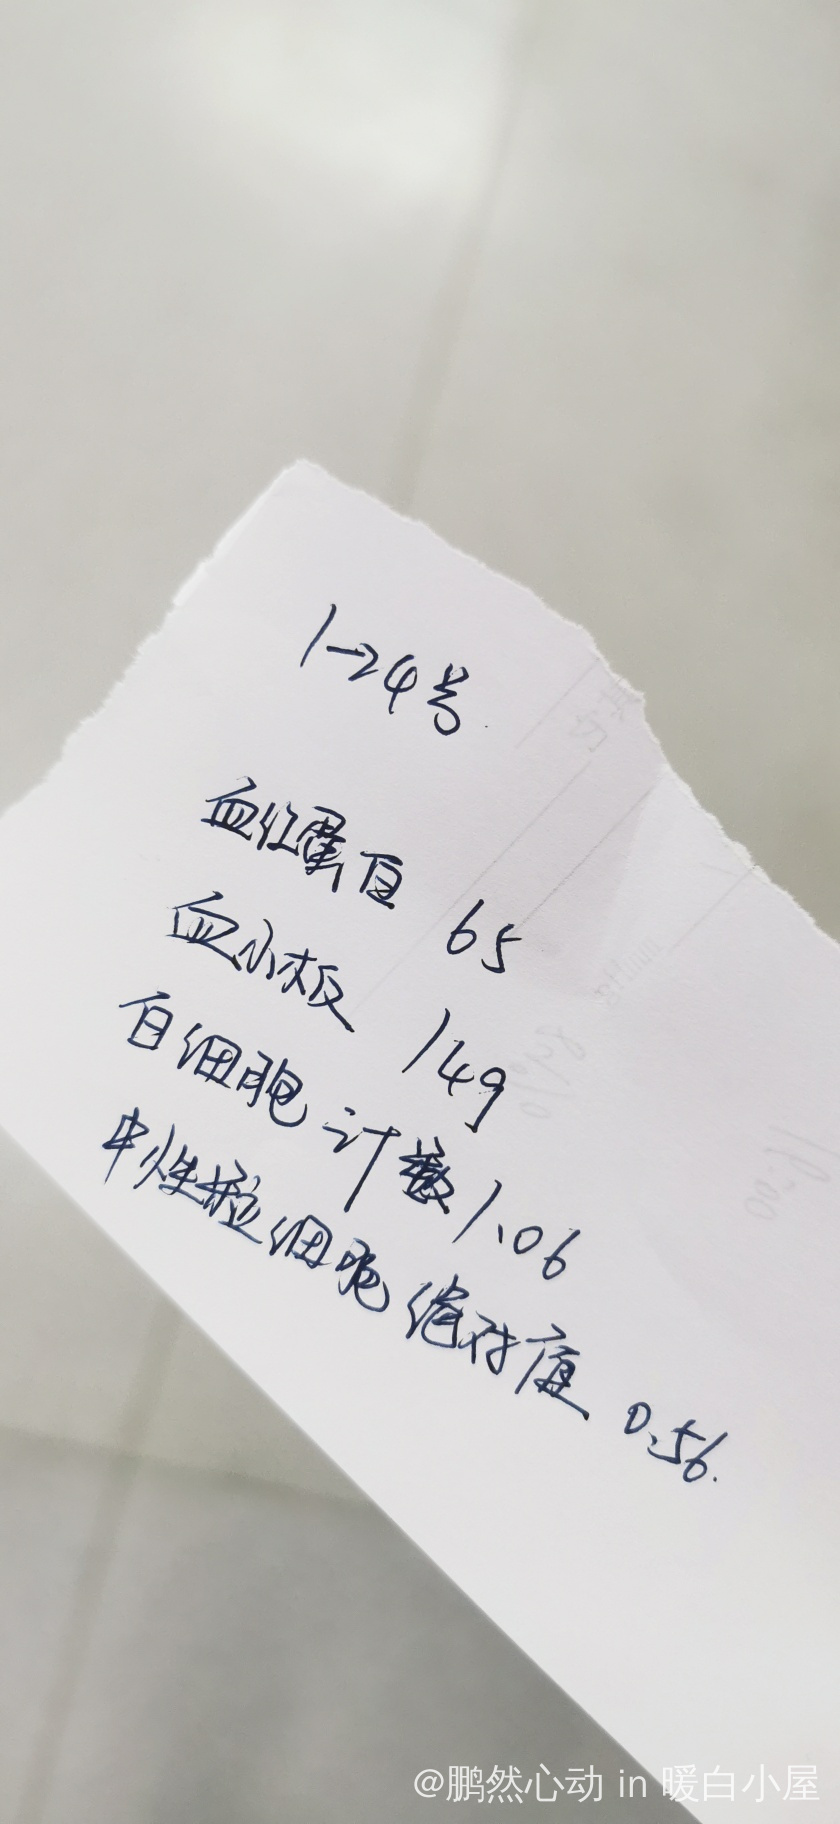 1-24号
血红蛋白 65
血小板 149
白细胞计数 1.06
中性粒细胞绝对值 0.56.
@鹏然心动 in 暖白小屋